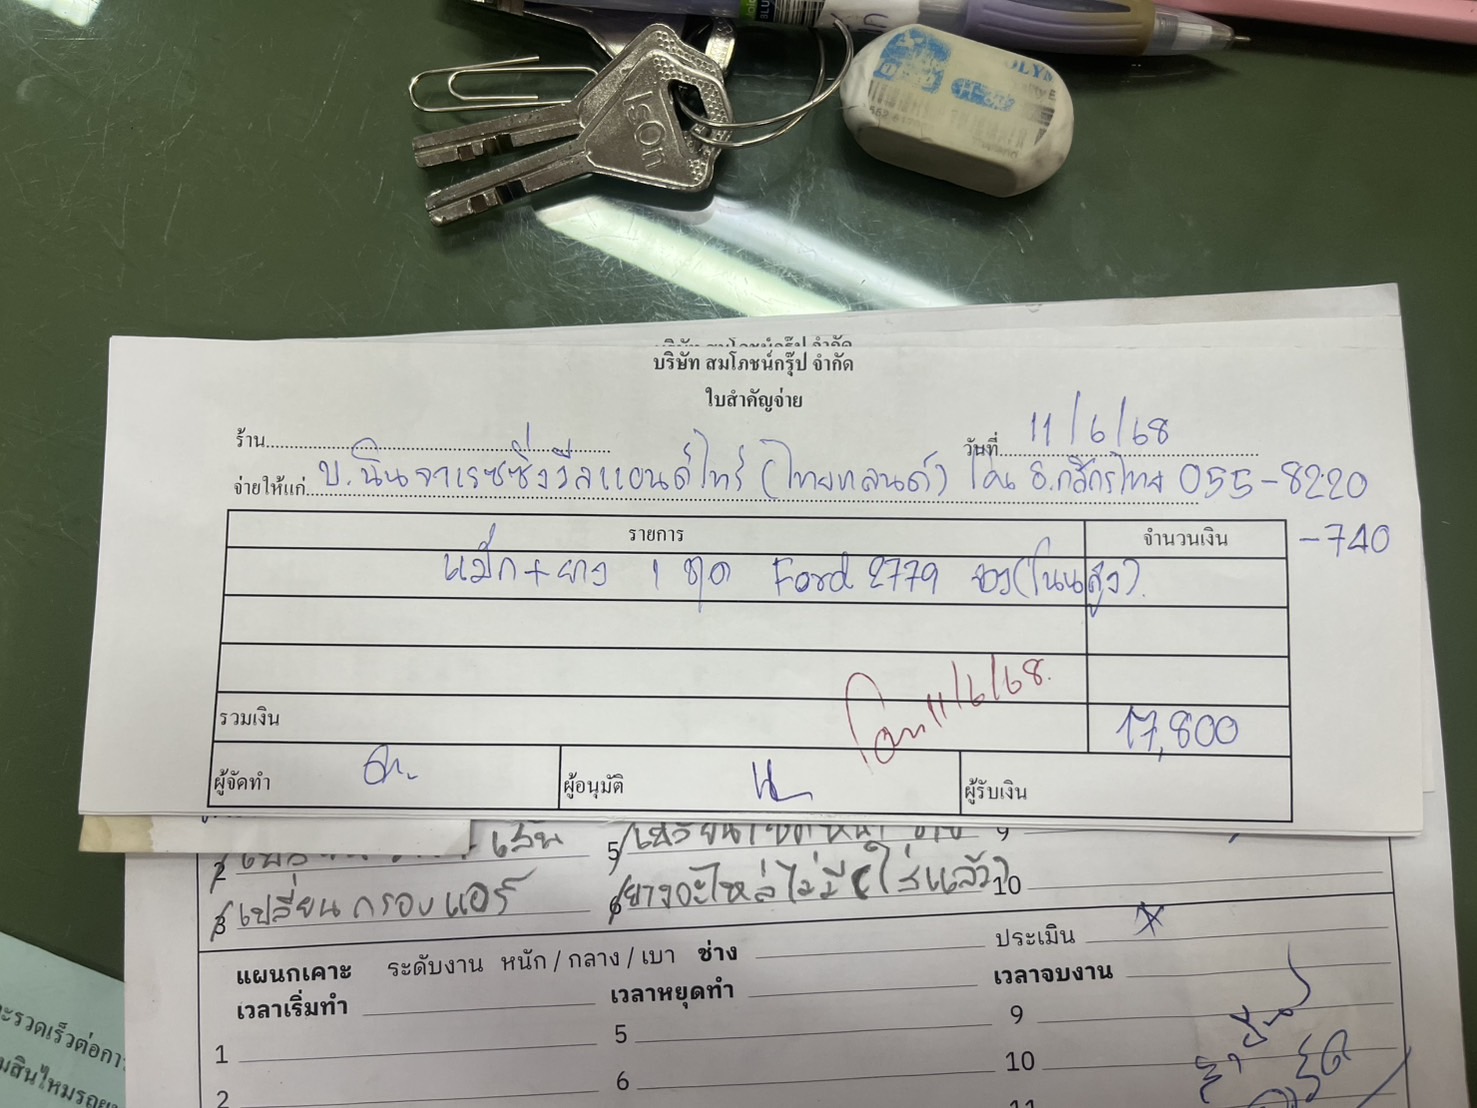 ISON
H-30
บริษัท สมโภชน์กรุ๊ป จำกัด
บริษัท สมโภชน์กรุ๊ป จำกัด
ใบสำคัญจ่าย
ร้าน
วันที่ 11/6/68
จ่ายให้แก่ บ.นินจาเรซซิ่งวีลแอนด์ไทร์ (ไทยแลนด์) โอน ธ.กสิกรไทย 055-8220
-740
รายการ จำนวนเงิน
แม็ก+ยาง 1 ชุด Ford 2779 จอง(โนนสูง)
โอน 11/6/68.
รวมเงิน 17,800
ผู้จัดทำ ผู้อนุมัติ ผู้รับเงิน
2 5 9
3 เปลี่ยนกรอบแอร์ 6 ยางอะไหล่ไม่มี (ใส่แล้ว) 10
แผนกเคาะ ระดับงาน หนัก / กลาง / เบา ช่าง ประเมิน
เวลาเริ่มทำ เวลาหยุดทำ เวลาจบงาน
1 5 9
2 6 10
11